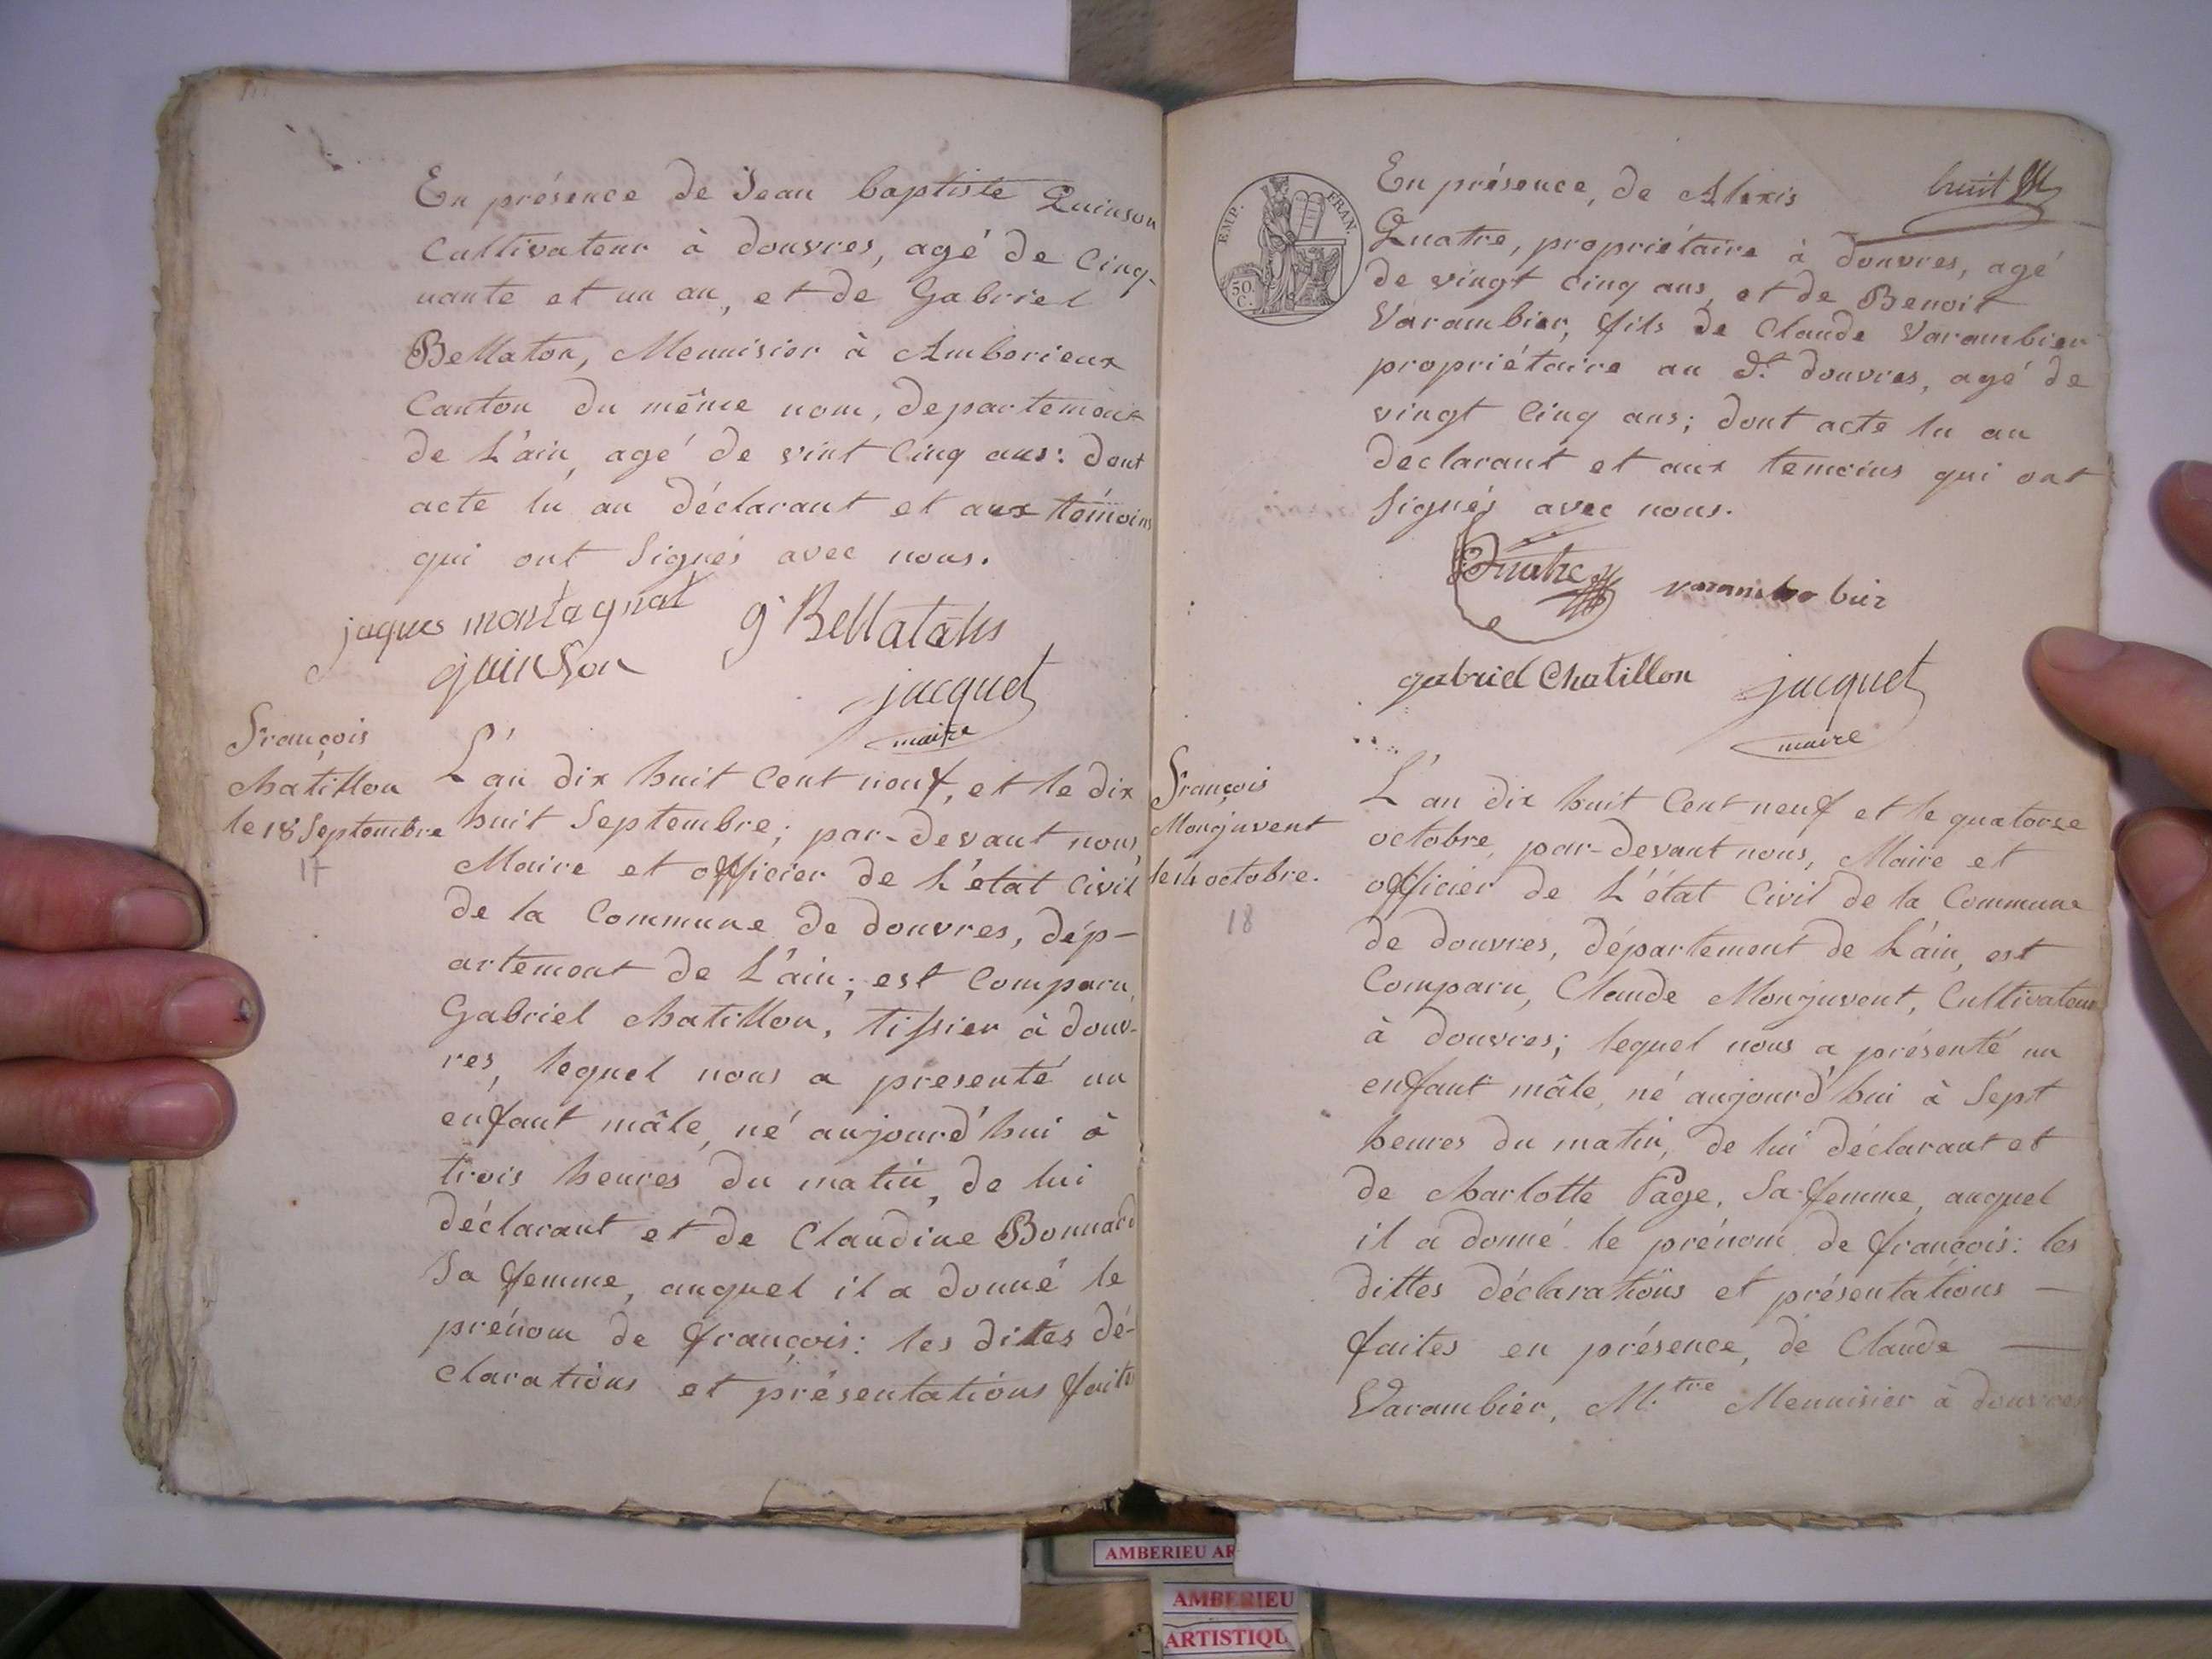 En présence de Jean baptiste Quinson
Cultivateur à douvres, agé de Cinq-
uante et un an, et de Gabriel
Bellaton, Menuisier à Amberieux
Canton du même nom, departement
de L'ain, agé de vint Cinq ans: dont
acte lu au déclarant et aux témoins
qui ont signés avec nous.
jaques montagnat
g Bellaton
quinson
jacquet
maire
François
chatillon
le 18 Septembre
17
L'an dix huit Cent neuf, et le dix
huit Septembre; par-devant nous,
Maire et officier de L'état Civil
de la Commune de douvres, dép-
artement de L'ain; est Comparu,
Gabriel chatillon, tissier à douv-
res, lequel nous a presenté un
enfant mâle, né aujourd'hui à
trois heures du matin, de lui
déclarant et de Claudine Bonnard
Sa femme, auquel il a donné le
prénom de françois: les dittes dé-
clarations et présentations faites
huit
EMP. FRAN.
50 C.
En présence, de Alexis
Quatre, propriétaire à douvres, agé
de vingt cinq ans, et de Benoit
Varambier, fils de Claude Varambier
propriétaire au dt. douvres, agé de
vingt Cinq ans; dont acte lu au
declarant et aux temoins qui ont
signés avec nous.
Quatre
varambier
gabriel Chatillon
jacquet
maire
François
Monjuvent
le 14 octobre.
18
L'an dix huit Cent neuf et le quatorze
octobre, par-devant nous, Maire et
officier de L'état Civil de la Commune
de douvres, département de L'ain, est
Comparu, Claude Monjuvent, Cultivateur
à douvres; lequel nous a présenté un
enfant mâle, né aujourd'hui à Sept
heures du matin, de lui déclarant et
de charlotte Page, Sa femme, auquel
il a donné le prénom de françois: les
dittes déclarations et présentations —
faites en présence, de Claude —
Varambier, M.tre Menuisier à douvres
AMBERIEU AR
AMBERIEU
ARTISTIQU